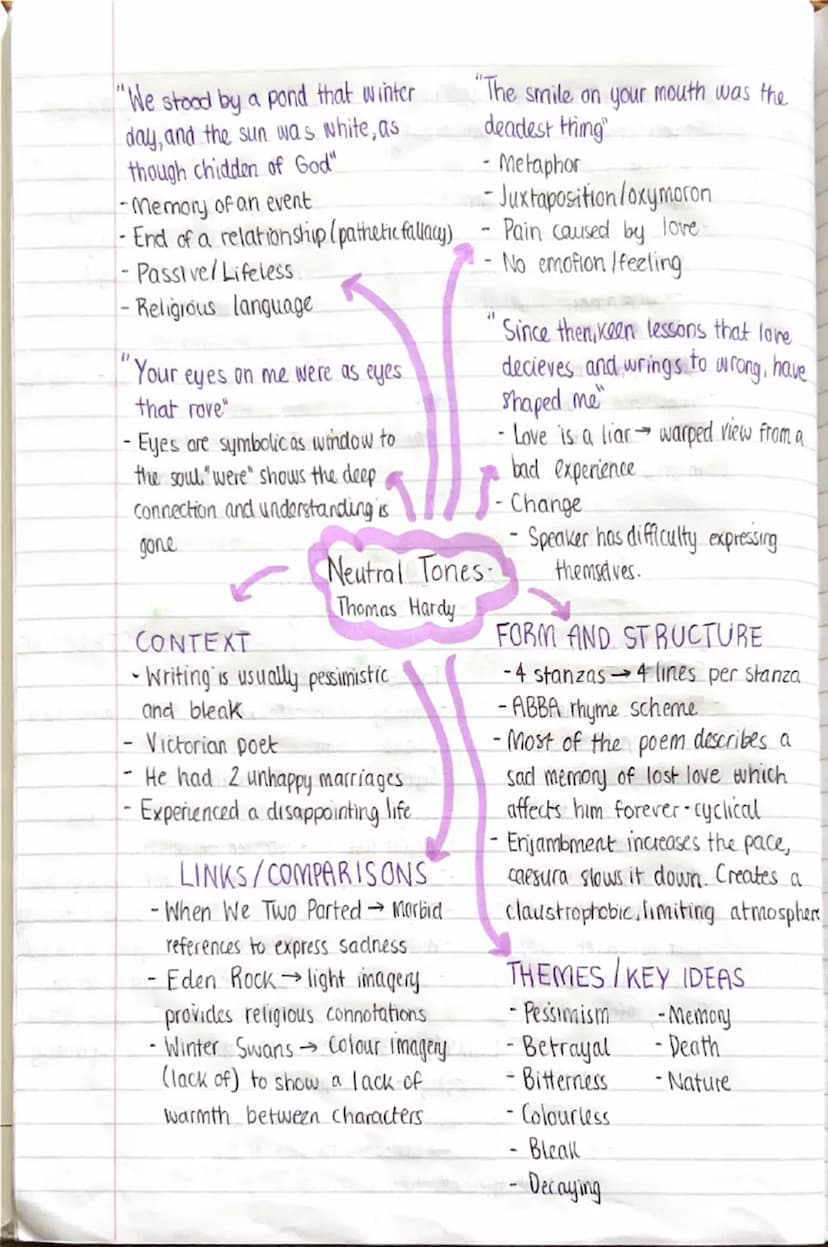 "We stood by a pond that winter
day, and the sun was white, as
though chidden of God"
- Memory of an event
- End of a relationship (pathetic fallacy)
- Passive/Lifeless
- Religious language
"The smile on your mouth was the
deadest thing"
- Metaphor
- Juxtaposition/oxymoron
- Pain caused by love
- No emotion/feeling
"Your eyes on me were as eyes
that rove"
- Eyes are symbolic as window to
the soul. "were" shows the deep
connection and understanding is
gone
"Since then, keen lessons that love
decieves and wrings to wrong, have
shaped me"
- Love is a liar → warped view from a
bad experience
- Change
- Speaker has difficulty expressing
themselves.
Neutral Tones-
Thomas Hardy
CONTEXT
- Writing is usually pessimistic
and bleak
- Victorian poet
- He had 2 unhappy marriages
- Experienced a disappointing life
FORM AND STRUCTURE
- 4 stanzas → 4 lines per stanza
- ABBA rhyme scheme
- Most of the poem describes a
sad memory of lost love which
affects him forever - cyclical
- Enjambment increases the pace,
caesura slows it down. Creates a
claustrophobic, limiting atmospher
LINKS/COMPARISONS
- When We Two Parted → Morbid
references to express sadness
- Eden Rock → light imagery
provides religious connotations
- Winter Swans → Colour imagery
(lack of) to show a lack of
warmth between characters
THEMES/KEY IDEAS
- Pessimism
- Betrayal
- Bitterness
- Colourless
- Bleak
- Decaying
- Memory
- Death
- Nature